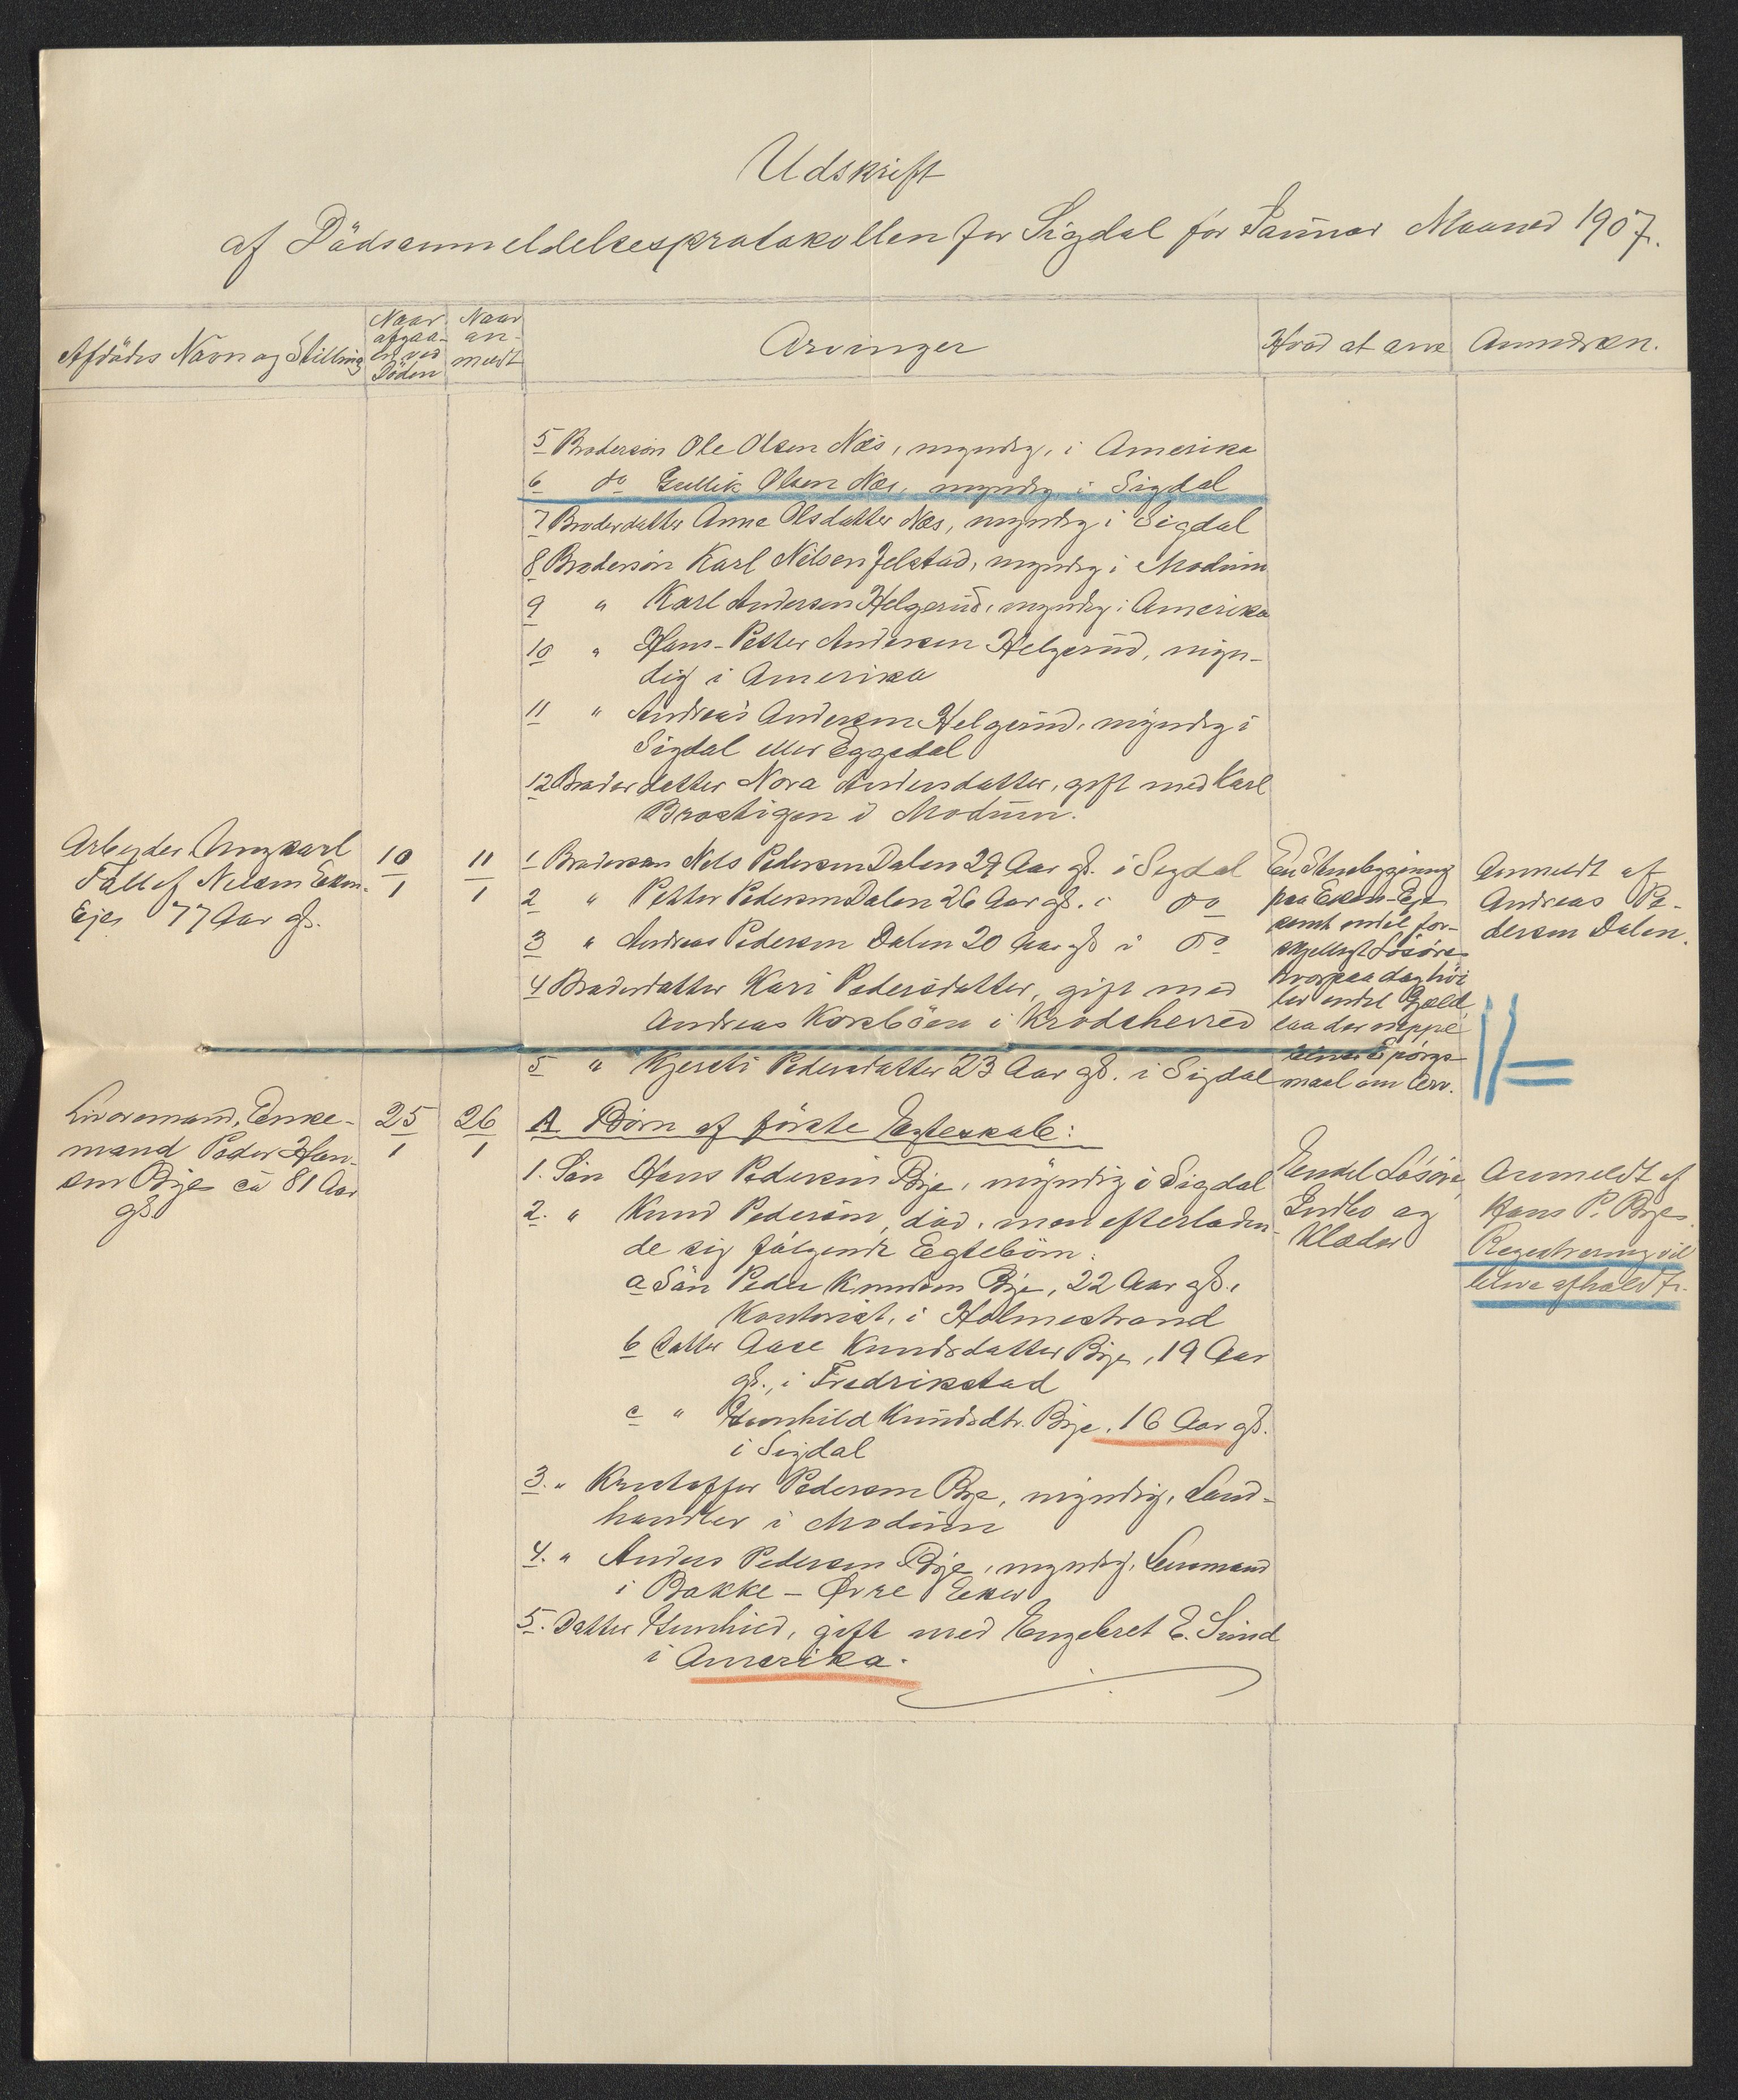 Udskrift
af Dödsanmeldelsesprotokollen for Sigdal for Januar Maaned 1907.
Afdödes Navn og Stilling
Naar
afgaa-
et ved
Döden
Naar
an-
meldt
Arvinger
Hvad at arve
Anmærkn.
5 Brodersön Ole Olsen Næs, myndig, i Amerika
6 do Gullik Olsen Næs, myndig i Sigdal
7 Broderdatter Anne Olsdatter Næs, myndig i Sigdal
8 Brodersön Karl Nilsen Jelstad, myndig i Modum
9 " Karl Andersen Helgerud, myndig i Amerika
10 " Hans-Petter Andersen Helgerud, myn-
dig i Amerika
11 " Andreas Andersen Helgerud, myndig i
Sigdal eller Eggedal
12 Broderdatter Nora Andersdatter, gift med Karl
Brostigen i Modum.
Arbeider Ungkarl
Tellef Nilsen Eken-
Eje 77 Aar gl.
10
1
11
1
1 Brodersön Nels Pedersen Dalen 29 Aar gl. i Sigdal
2 " Petter Pedersen Dalen 26 Aar gl. i do
3 " Andreas Pedersen Dalen 20 Aar gl i do
4 Broderdatter Kari Pedersdatter, gift med
Andreas Korsböen i Krödsherred
5 " Kjersti Pedersdatter 23 Aar gl. i Sigdal
En Stuebygning
paa Eken-Eje
samt endel for-
skjelligt Lösöre
hvorpaa dog hvi
ler endel Gjeld
saa der neppe
bliver Spörgs-
maal om Arv.
Anmeldt af
Andreas Pe-
dersen Dalen.
Livöremand, Enke-
mand Peder Han-
sen Bye ca 81 Aar
gl.
25
1
26
1
A Börn af förste Egteskab:
1. Sön Hans Pedersen Bye, myndig i Sigdal
2. " Knud Pedersen, död, men efterladen-
de sig fölgende Egtebörn:
a Sön Peder Knudsen Bye, 22 Aar gl.,
Kontorist, i Holmestrand
b Datter Aase Knudsdatter Bye, 19 Aar
gl., i Fredrikstad
c " Gunhild Knudsdtr. Bye, 16 Aar gl.
i Sigdal
3. " Kristoffer Pedersen Bye, myndig, Land-
handler i Modum
4. " Anders Pedersen Bye, myndig, Lensmand
i Bakke - Øvre Eker
5. Datter Gunhild, gift med Engebret E. Sund
i Amerika.
Endel Lösöre,
Indbo og
Klæder
Anmeldt af
Hans P. Bye.
Registrering vil
blive afholdt.